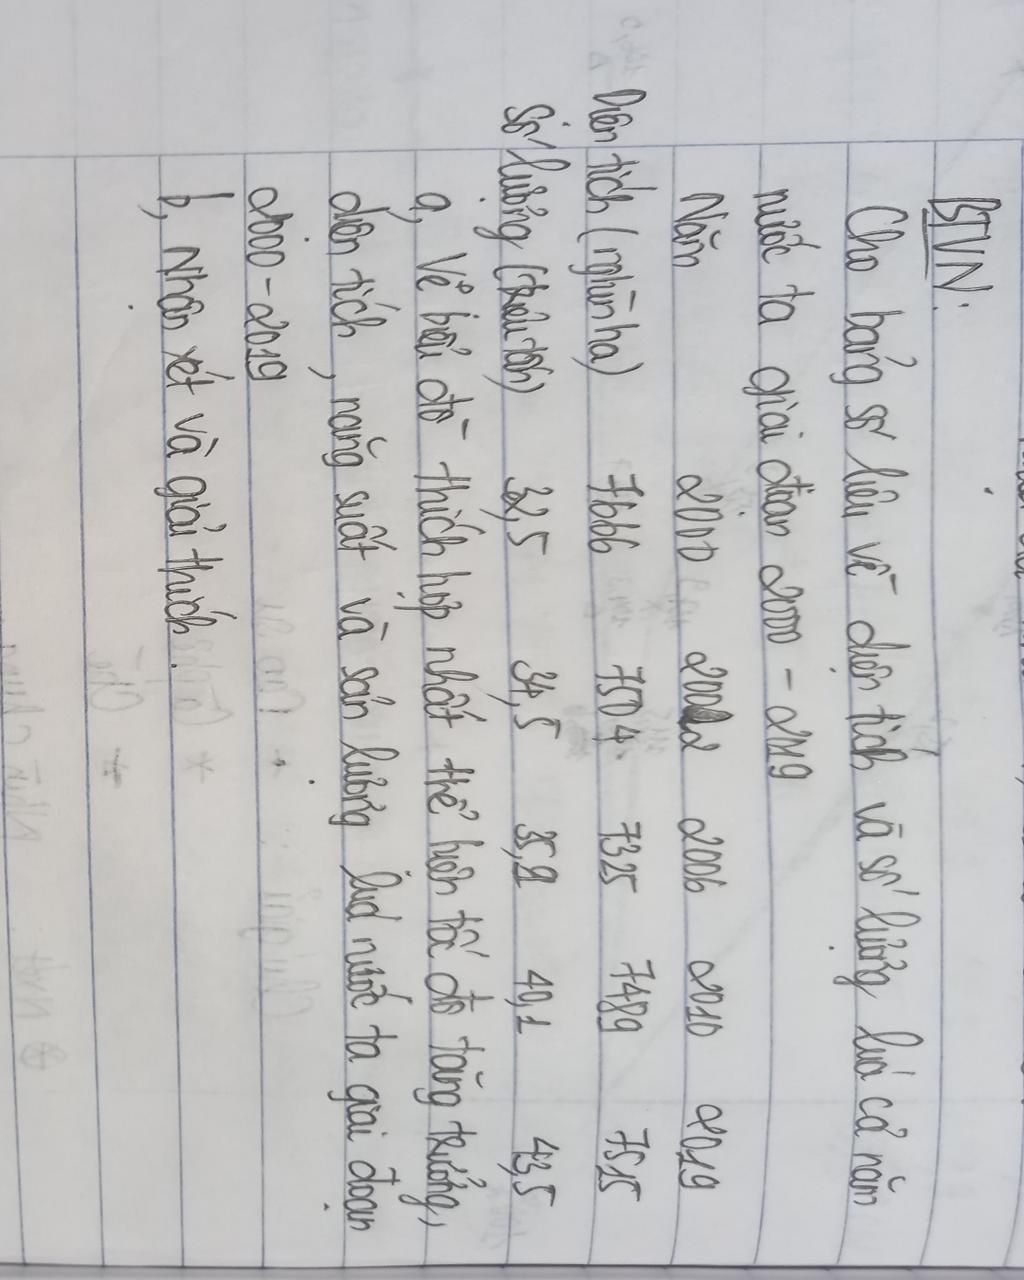 BTVN:
Cho bảng số liệu về diện tích và số lượng lúa cả năm
nước ta giai đoạn 2000 - 2019
Năm 2000 2002 2006 2010 2019
Diện tích (nghìn ha) 7666 7504 7325 7489 7515
Số lượng (triệu tấn) 32,5 34,5 35,9 40,1 43,5
a, Vẽ biểu đồ thích hợp nhất thể hiện tốc độ tăng trưởng,
diện tích, năng suất và sản lượng lúa nước ta giai đoạn
2000-2019
b, Nhận xét và giải thích.